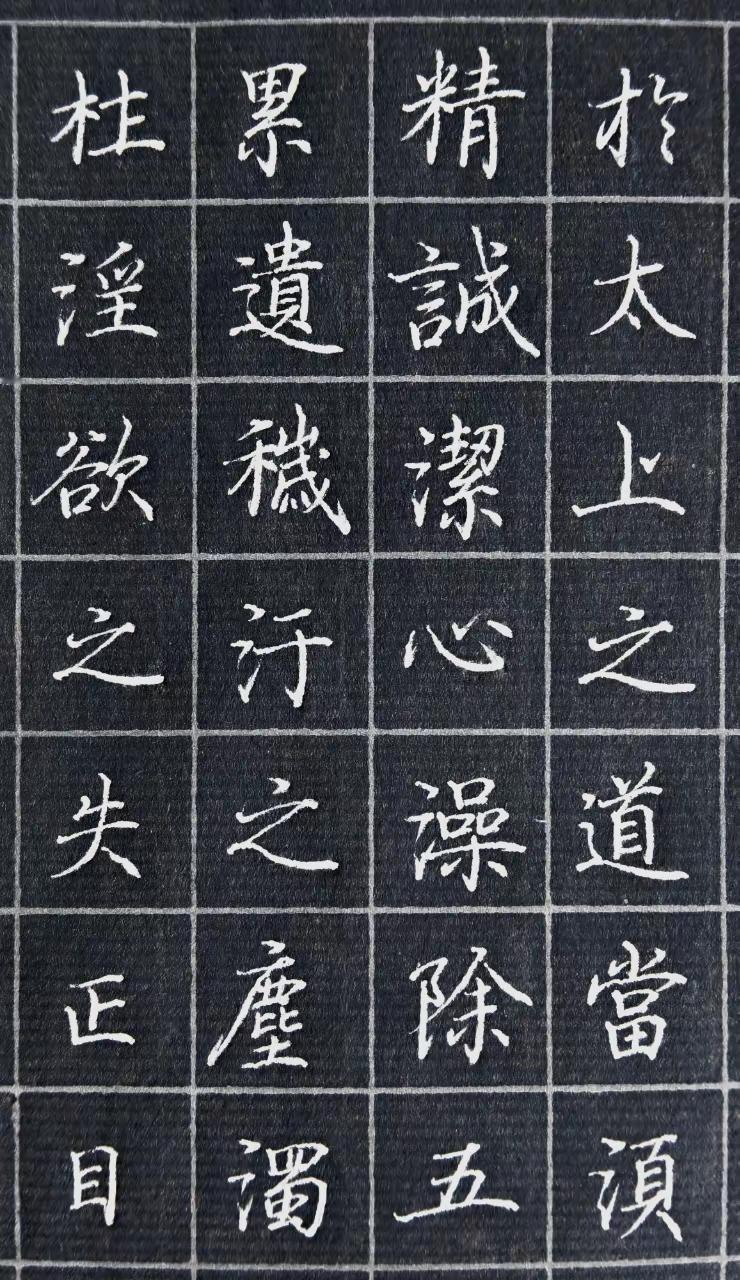 於太上之道當須
精誠潔心澡除五
累遺穢汙之塵濁
杜淫欲之失正目